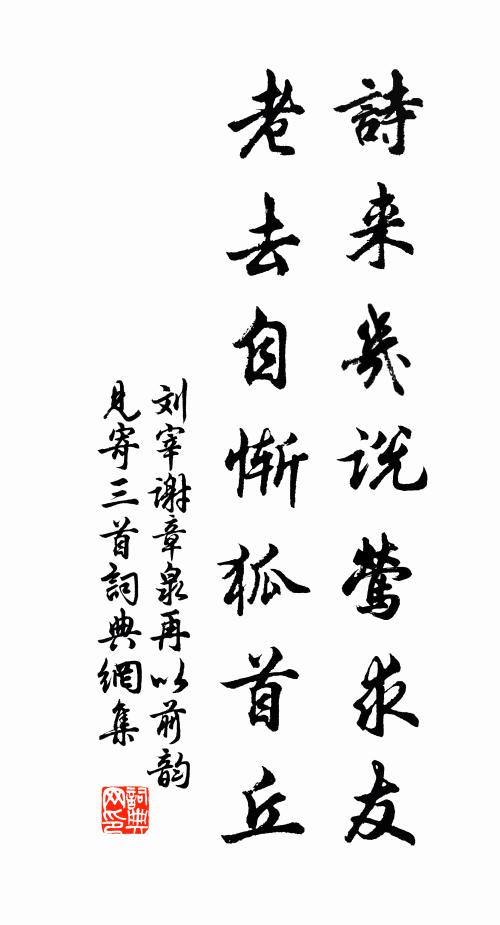 詩来幾説鶯求友
老去自慚狐首丘
刘宰谢章泉再以前韵
见寄三首詞典網集
詞典网印